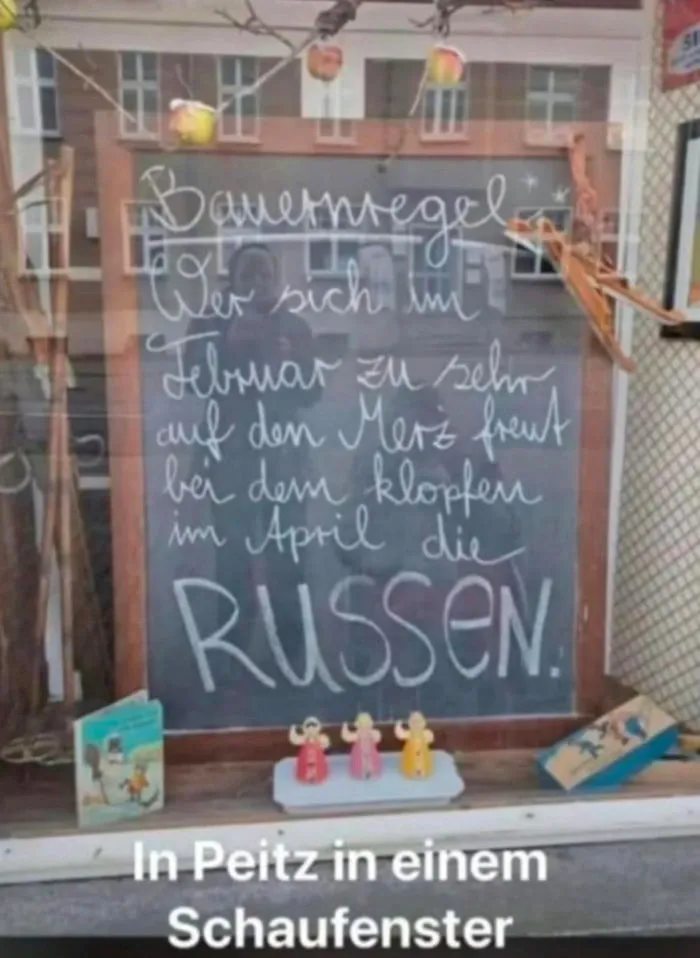 Bauernregel
Wer sich im
Februar zu sehr
auf den Merz freut
bei dem klopfen
im April die
RUSSEN.
In Peitz in einem
Schaufenster